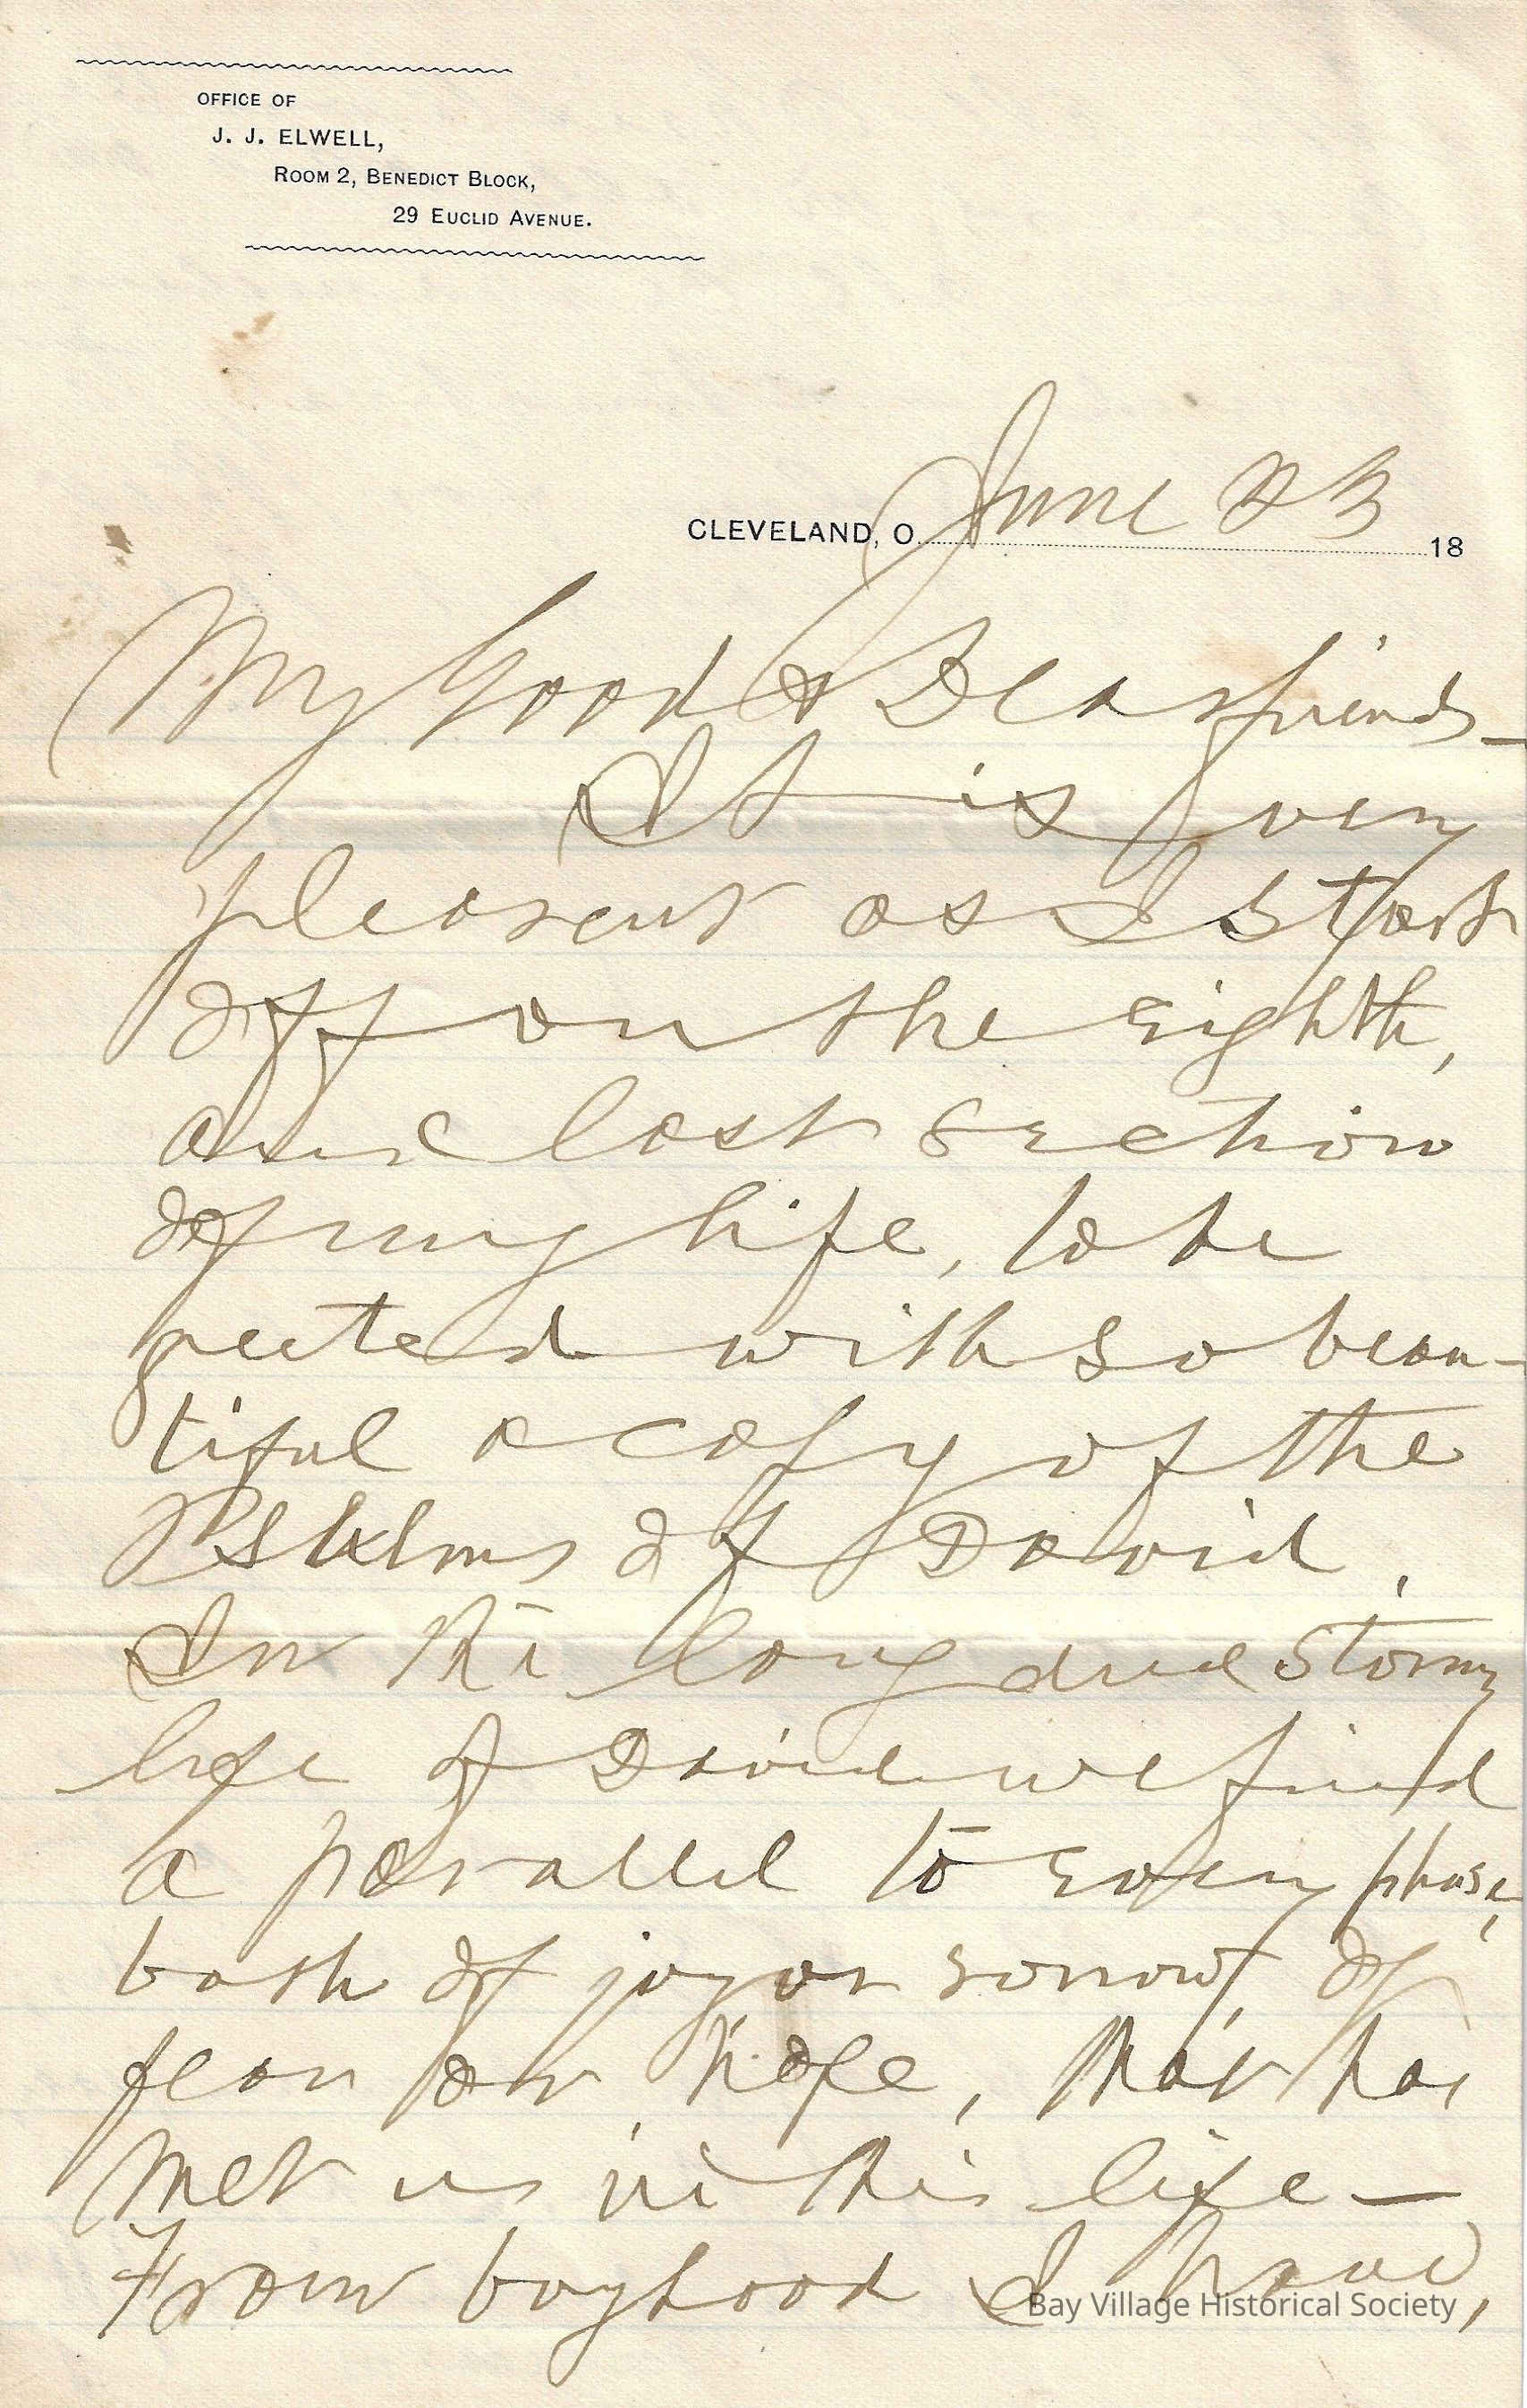 OFFICE OF
J. J. ELWELL,
ROOM 2, BENEDICT BLOCK,
29 EUCLID AVENUE.
CLEVELAND, O. June 23 18
My Good & Dear friends_
It is very
pleasent as I start
off on the eighth,
and last section
of my life, to be
greeted with so beau-
tiful a copy of the
Pslalms of David,
In the long and stormy
life of David we find
a parallel to every phase,
both of joy or sorrow, of
fear or hope, that has
met us in this life—
From boyhood I have,
Bay Village Historical Society